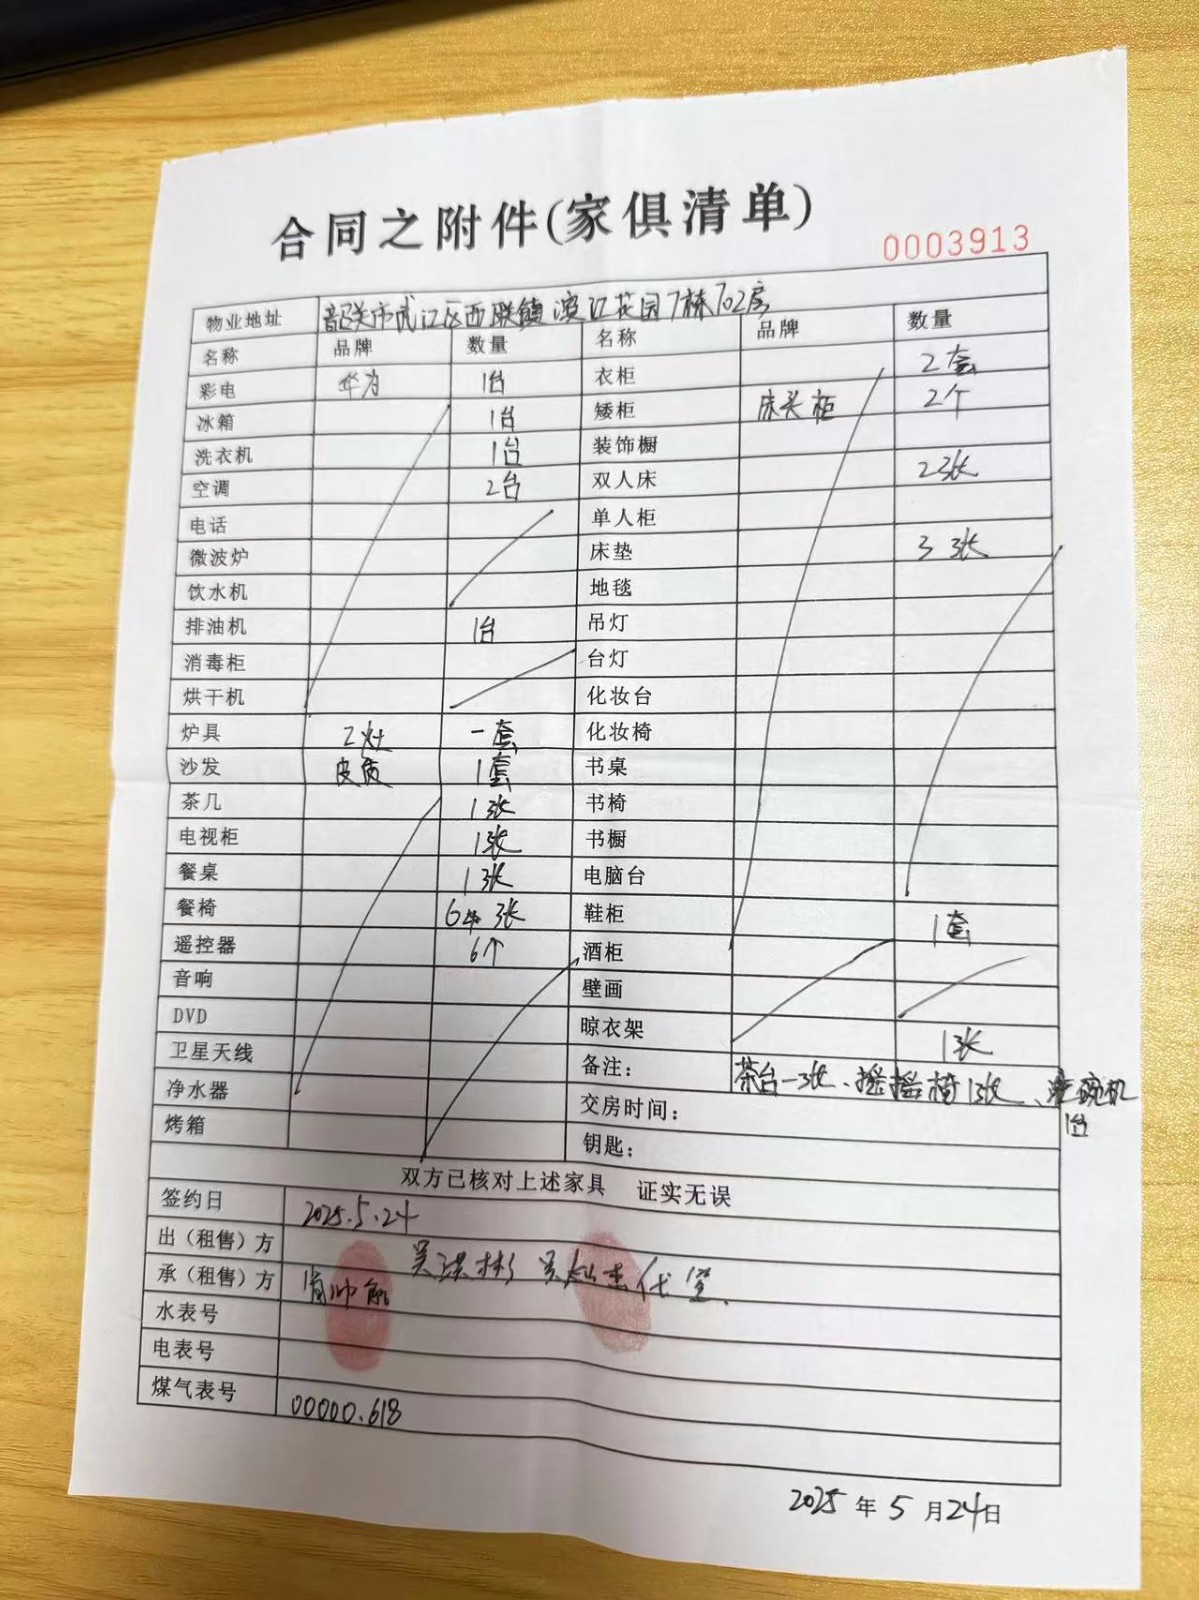 合同之附件(家俱清单)
0003913
物业地址 韶关市武江区西联镇滨江花园7栋702房
名称 品牌 数量 名称 品牌 数量
彩电 华为 1台 衣柜 2套
冰箱 1台 矮柜 床头柜 2个
洗衣机 1台 装饰橱
空调 2台 双人床 2张
电话 单人柜
微波炉 床垫 3张
饮水机 地毯
排油机 1台 吊灯
消毒柜 台灯
烘干机 化妆台
炉具 2灶 一套 化妆椅
沙发 皮质 1套 书桌
茶几 1张 书椅
电视柜 1张 书橱
餐桌 1张 电脑台
餐椅 6 张 鞋柜 1套
遥控器 6个 酒柜
音响 壁画
DVD 晾衣架 1张
卫星天线 备注: 茶台一张、摇摇椅1张、洗碗机1台
净水器 交房时间:
烤箱 钥匙:
双方已核对上述家具 证实无误
签约日 2025.5.24
出(租售)方 吴洪彬 代签
承(租售)方
水表号
电表号
煤气表号 00000.618
2025年5月24日